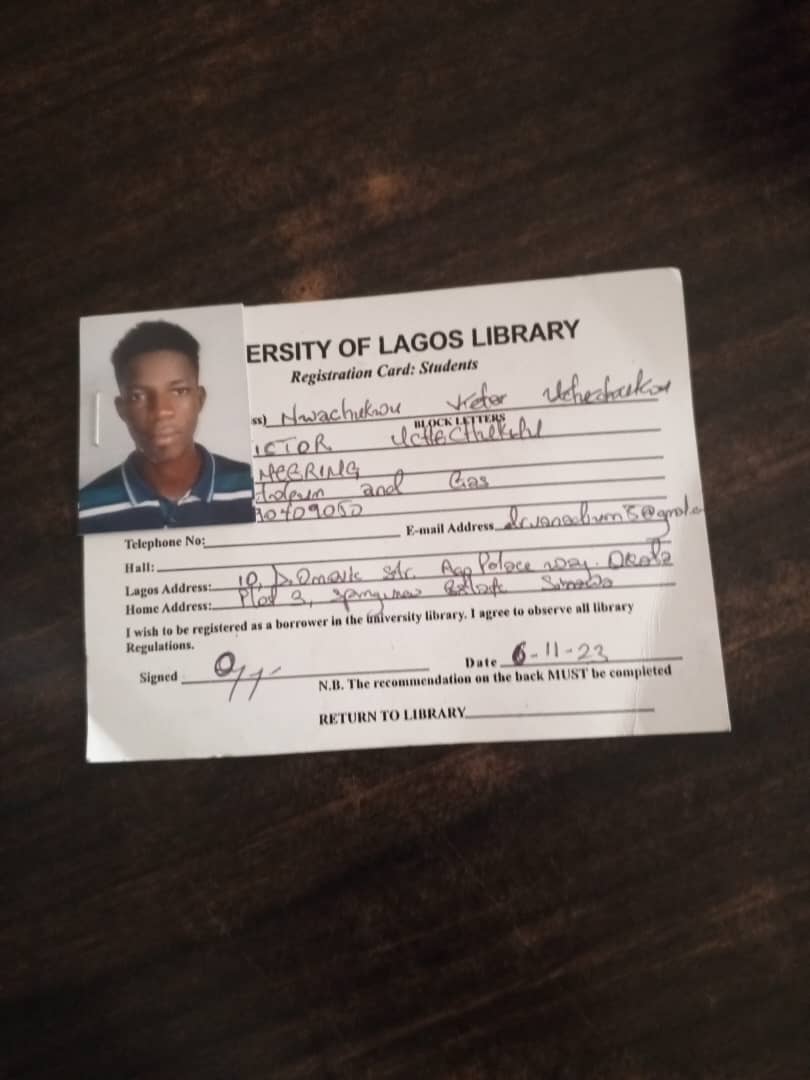 ERSITY OF LAGOS LIBRARY
Registration Card: Students
ss) Nwachukwu Victor Uchechukwu
BLOCK LETTERS
ICTOR UCHECHUKWU
NEERING
and Gas
Telephone No:
E-mail Address
Hall:
Lagos Address: 10, Str. Ago Palace way. Okota
Home Address: Plot 3,
I wish to be registered as a borrower in the university library. I agree to observe all library
Regulations.
Signed
Date 6-11-23
N.B. The recommendation on the back MUST be completed
RETURN TO LIBRARY